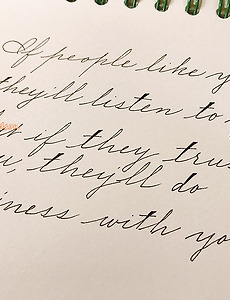 If people like
they'll listen to
if they
they'll do
with